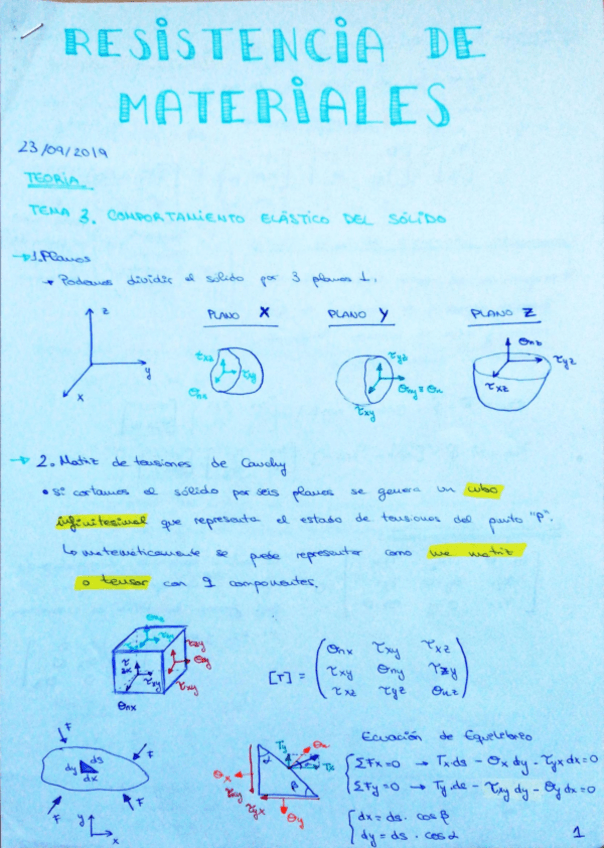 RESISTENCIA DE
MATERIALES
23/09/2019
TEORÍA
TEMA 3. COMPORTAMIENTO ELÁSTICO DEL SÓLIDO
1. Planos
Podemos dividir el sólido por 3 planos ⊥.
PLANO X PLANO Y PLANO Z
z
y
x
τxz τxy σnx
τyz σny = σn τxy
σnz τyz τxz
2. Matriz de tensiones de Cauchy
• Si cortamos el sólido por seis planos se genera un cubo
infinitesimal que representa el estado de tensiones del punto "P".
Lo matemáticamente se puede representar como una matriz
o tensor con 9 componentes.
[T] = ( σnx τxy τxz
τxy σny τzy
τxz τyz σnz )
σnx
Ecuación de Equilibrio
ΣFx=0 → Tx.ds - σx dy - τyx dx=0
ΣFy=0 → Ty.ds - τxy dy - σy dx=0
dx = ds · cos β
dy = ds · cos α
F F F F
dy ds dx
y x
Ty σn Tx
α β
σx τxy τyx σy
1